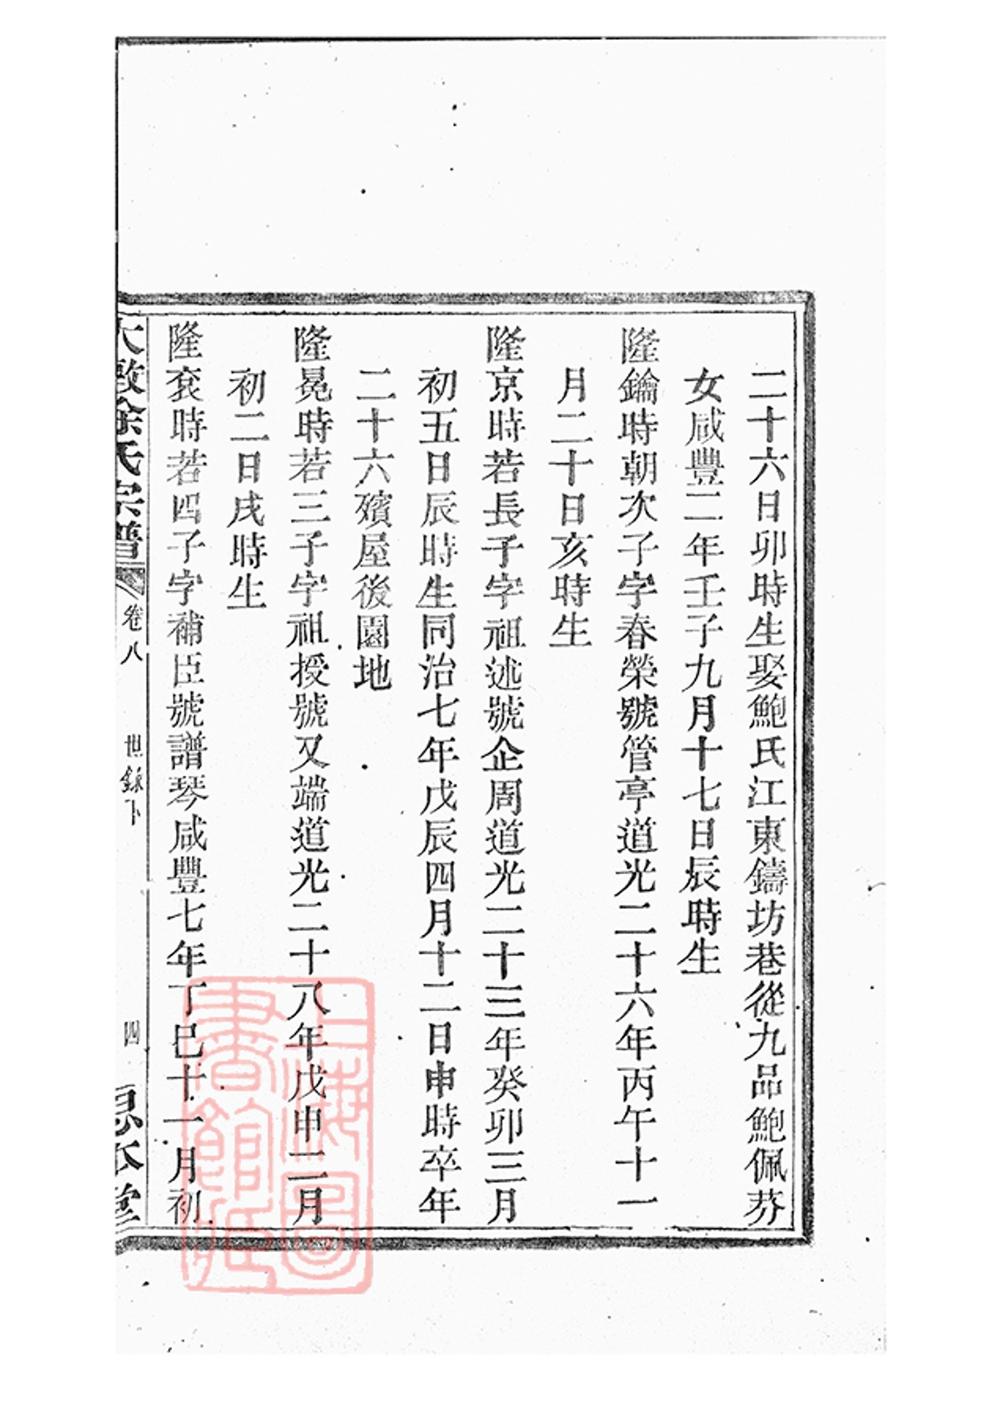 二十六日卯時生娶鮑氏江東鑄坊巷從九品鮑佩芬
女咸豐二年壬子九月十七日辰時生
隆鑰時朝次子字春榮號管亭道光二十六年丙午十一
月二十日亥時生
隆京時若長子字祖述號企周道光二十三年癸卯三月
初五日辰時生同治七年戊辰四月十二日申時卒年
二十六殯屋後園地
隆冕時若三子字祖授號又端道光二十八年戊申二月
初二日戌時生
隆袞時若四子字補臣號譜琴咸豐七年丁巳十一月初
大墩徐氏宗譜 卷八 世錄下 四 思本堂
上海圖書館藏